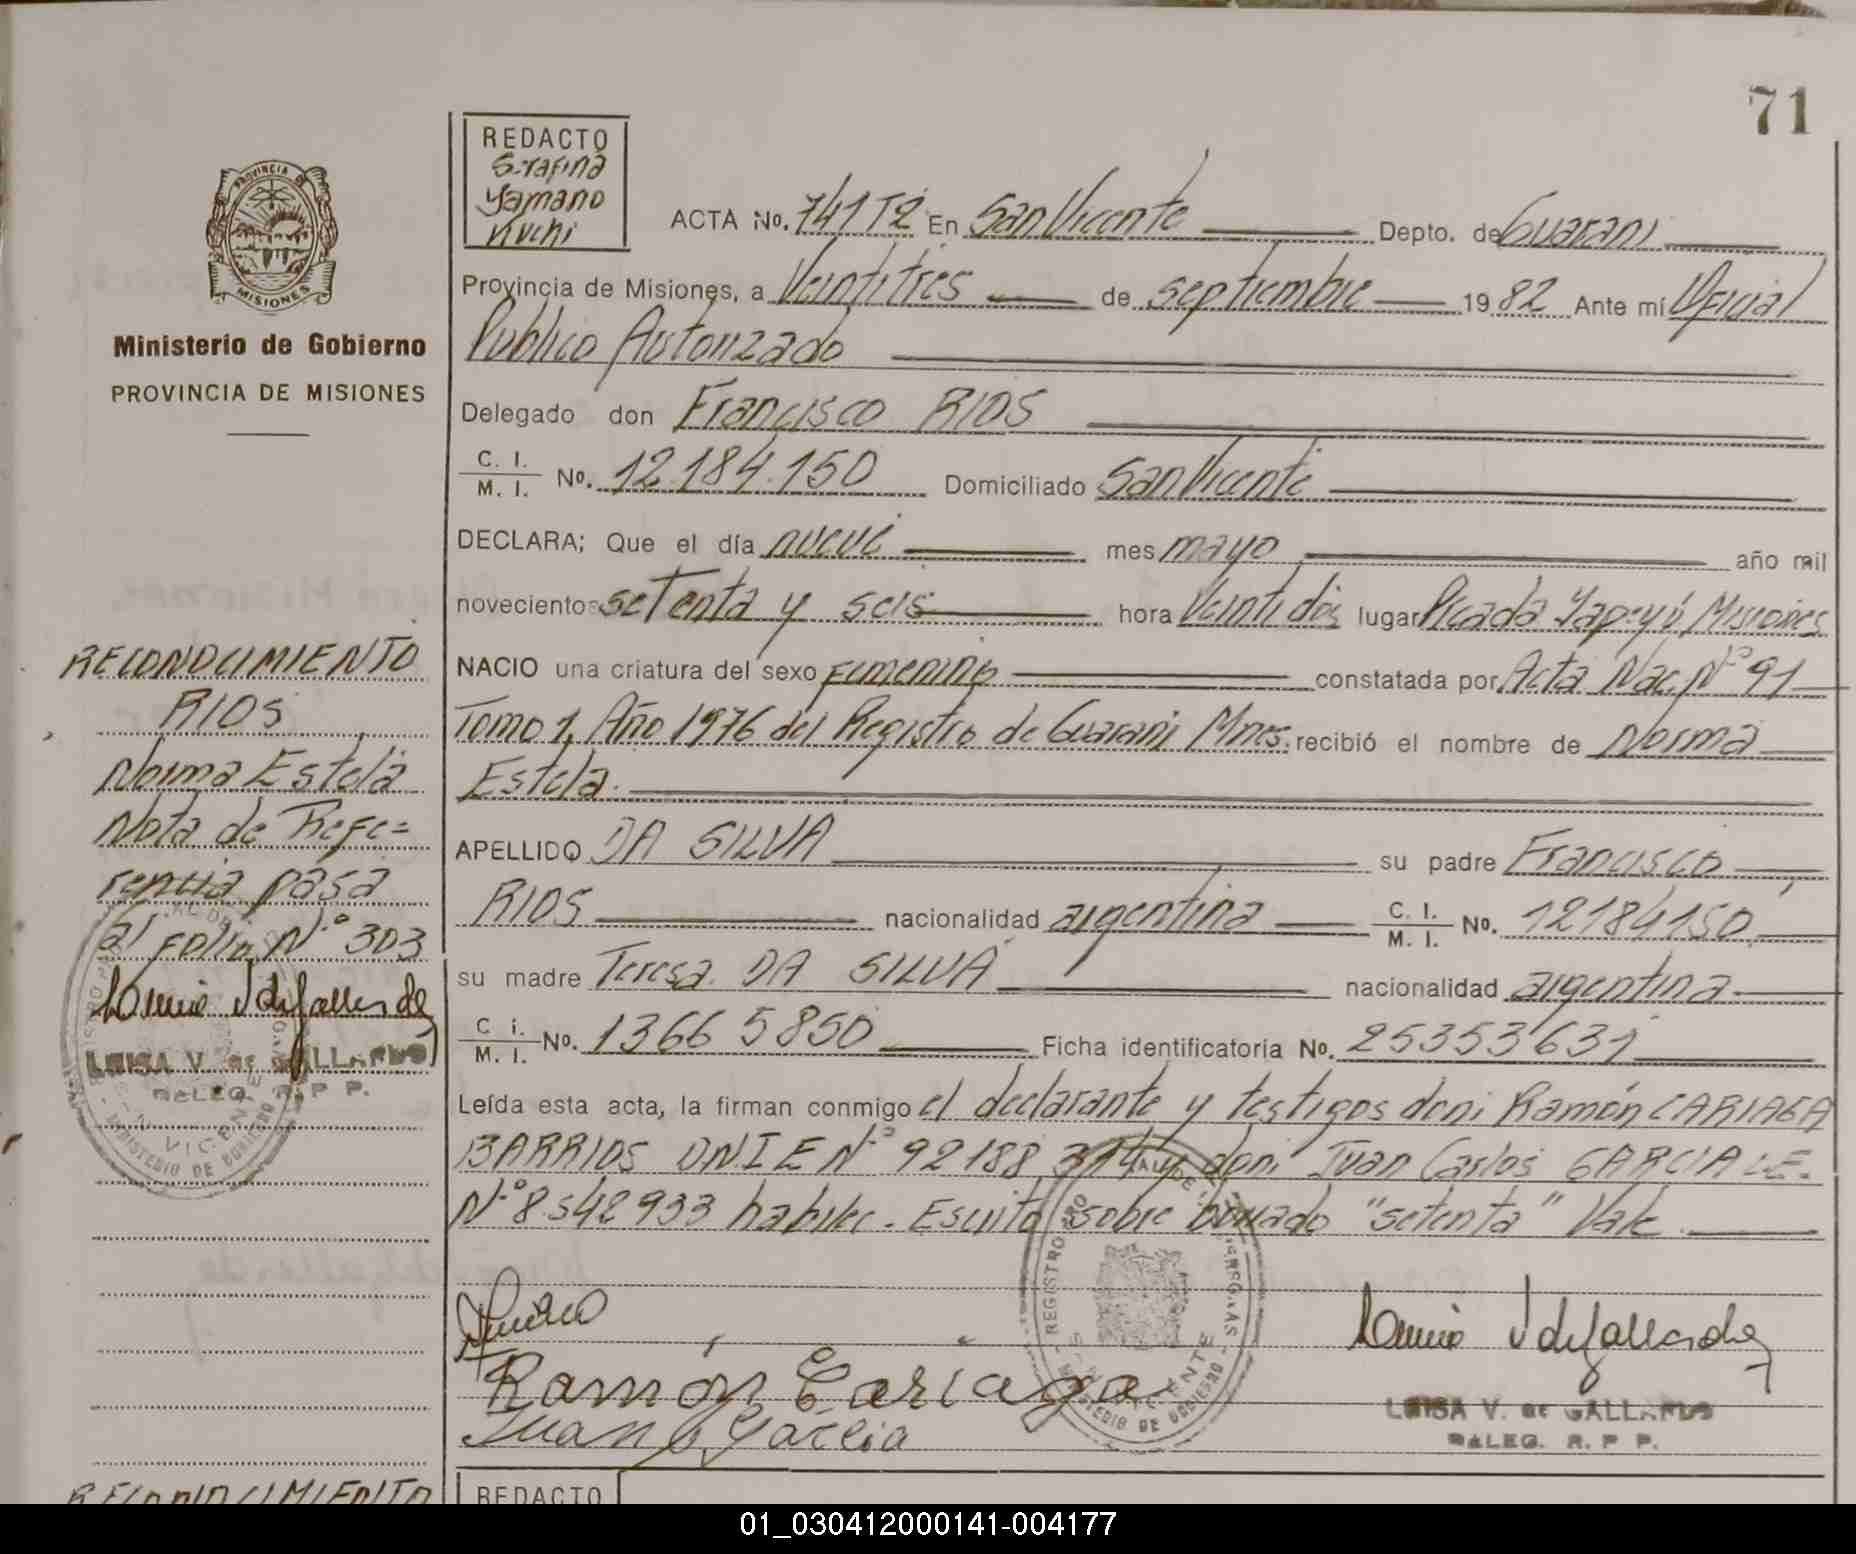 71
PROVINCIA DE
MISIONES
Ministerio de Gobierno
PROVINCIA DE MISIONES
REDACTO
Serafina
Yamano
Kuchi
ACTA No. 741 T2 En San Vicente Depto. de Guarani
Provincia de Misiones, a Veintitres de septiembre 1982 Ante mí Oficial
Publico Autorizado
Delegado don Francisco RIOS
C. I. / M. I. No. 12.184.150 Domiciliado San Vicente
DECLARA; Que el día nueve mes mayo año mil
novecientos setenta y seis hora Veintidós lugar Picada Yapeyú Misiones
NACIO una criatura del sexo femenino constatada por Acta Nac. Nº 91
Tomo 1, Año 1976 del Registro de Guarani Mnes. recibió el nombre de Norma
Estela.
APELLIDO DA SILVA su padre Francisco
RIOS nacionalidad argentina C. I. / M. I. No. 12184150,
su madre Teresa DA SILVA nacionalidad argentina
C. i. / M. I. No. 1366 5850 Ficha identificatoria No. 25353631
Leída esta acta, la firman conmigo el declarante y testigos don: Ramón CARIAGA
BARRIOS DNI E Nº 92188,314 y don: Juan Carlos GARCIA L.E.
Nº 8542933 habiles. Escrito sobre borrado "setenta" Vale.
Ramón Cariaga
Juan C Garcia
LUISA V. DE GALLARDO
DELEG. R. P P.
RECONOCIMIENTO
RIOS
Norma Estela
Nota de Refe=
rencia pasa
al folio Nº 303
LUISA V. DE GALLARDO
DELEG. R. P P.
S. VICENTE
MINISTERIO DE GOBIERNO
REGISTRO
MINISTERIO DE GOBIERNO
RECONOCIMIENTO
REDACTO
01_030412000141-004177